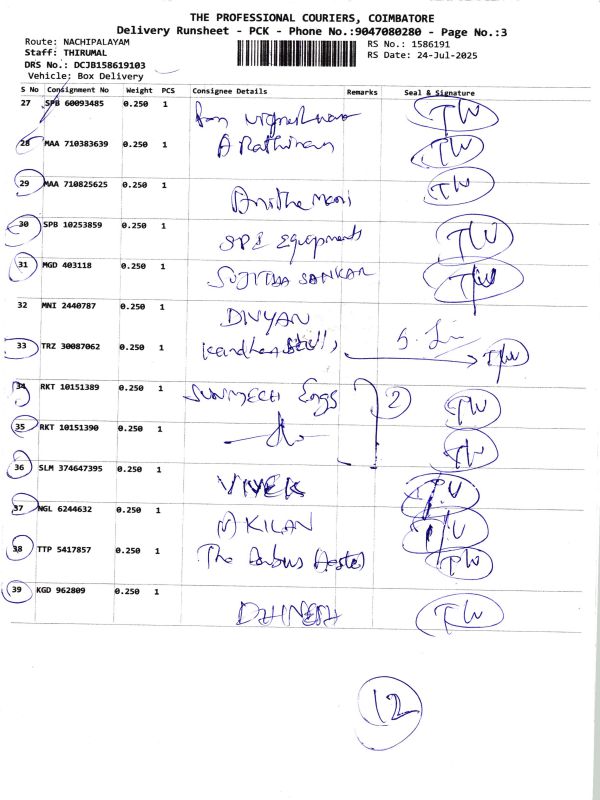 THE PROFESSIONAL COURIERS, COIMBATORE
Delivery Runsheet - PCK - Phone No.:9047080280 - Page No.:3
Route: NACHIPALAYAM
RS No.: 1586191
Staff: THIRUMAL
RS Date: 24-Jul-2025
DRS No.: DCJB158619103
Vehicle; Box Delivery
S No Consignment No Weight PCS Consignee Details Remarks Seal & Signature
27 SPB 60093485 0.250 1 TW
28 MAA 710383639 0.250 1 A Rathinam TW
29 MAA 710825625 0.250 1 Anitha Mani TW
30 SPB 10253859 0.250 1 SPE Equipments TW
31 MGD 403118 0.250 1 SUJITHA SANKAR TW
32 MNI 2440787 0.250 1 DIVYAN
33 TRZ 30087062 0.250 1 TW
34 RKT 10151389 0.250 1 SUNMECH Engg 2 TW
35 RKT 10151390 0.250 1 TW
36 SLM 374647395 0.250 1 VIVEK TW
37 NGL 6244632 0.250 1 KILAN TW
38 TTP 5417857 0.250 1 The TW
39 KGD 962809 0.250 1 TW
12